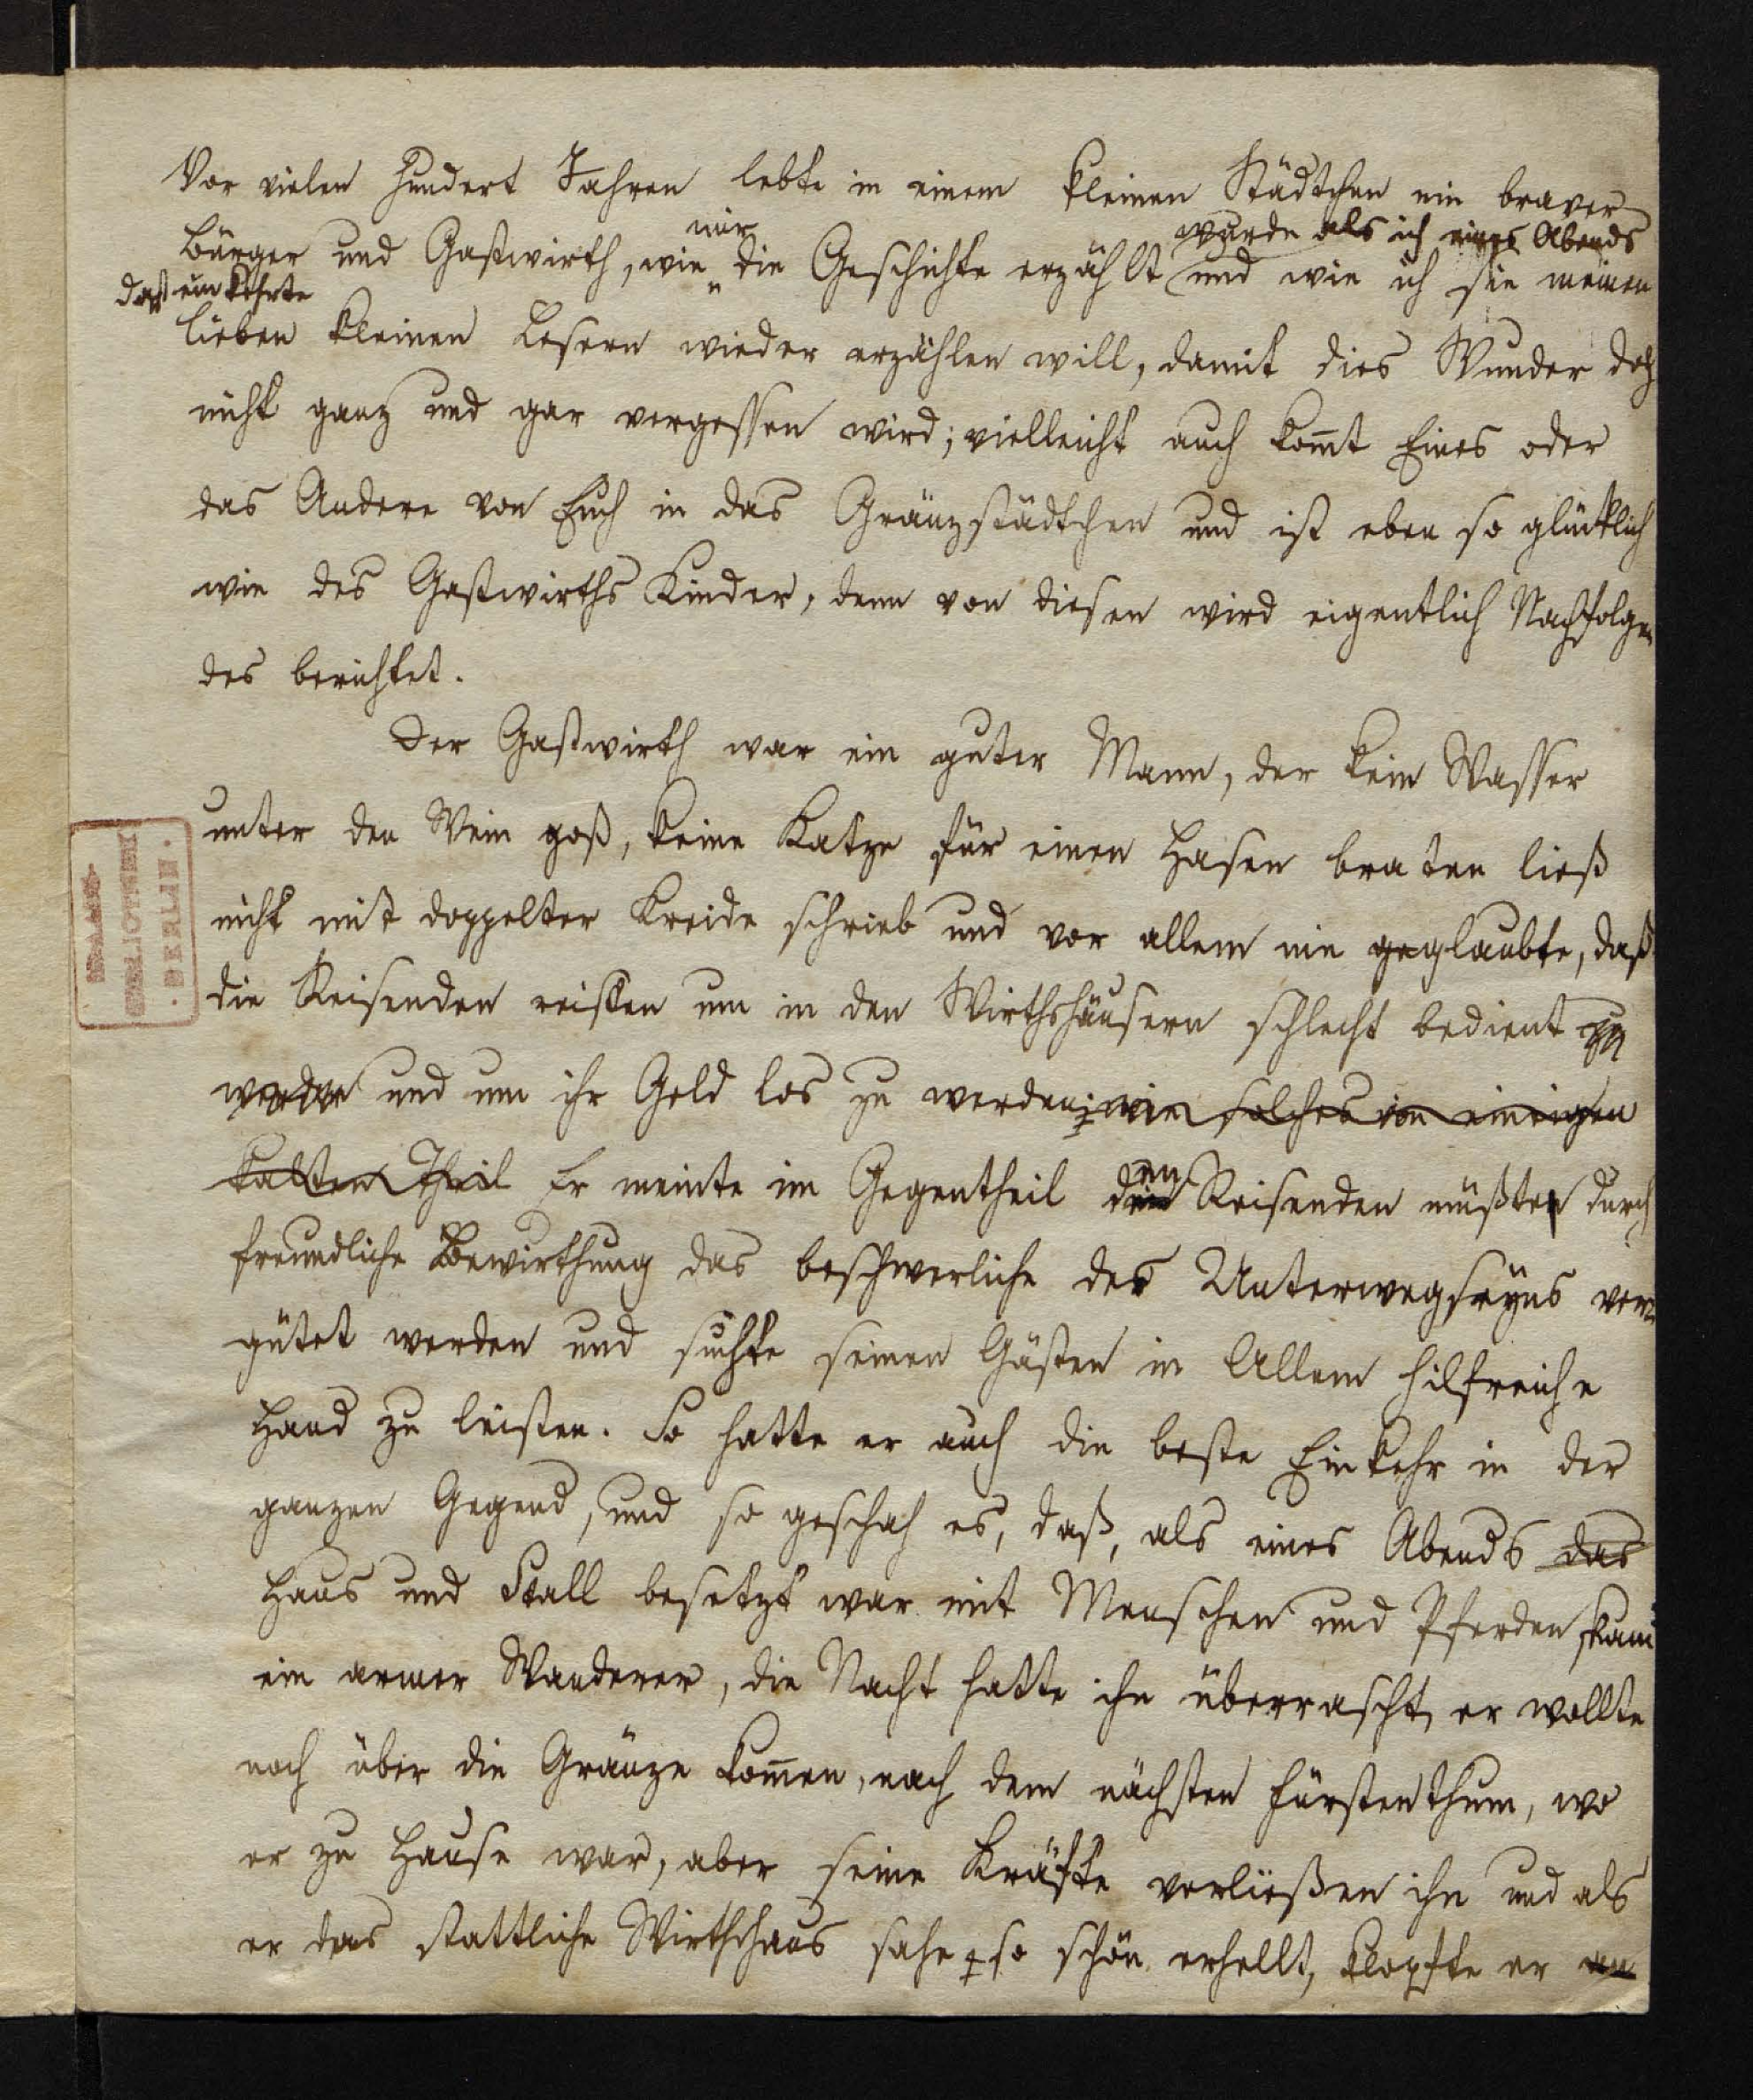 Vor vielen hundert Jahren lebte in einem kleinen Städtchen ein braver
mir wurde als ich eines Abends
Bürger und Gastwirth, wie die Geschichte erzählt und wie ich sie meinen
das einkehrte
lieben kleinen Lesern wieder erzählen will, damit dies Wunder doch
nicht ganz und gar vergessen wird; vielleicht auch komt Eines oder
das Andere von Euch in das Gränzstädtchen und ist eben so glücklich
wie des Gastwirths Kinder, denn von diesen wird eigentlich Nachfolgen
des berichtet.
Der Gastwirth war ein guter Mann, der kein Wasser
unter den Wein goß, keine Katze für einen Hasen braten ließ
nicht mit doppelter Kreide schrieb und vor allem nie geglaubte, daß
die Reisenden reisten um in den Wirthshäusern schlecht bedient zu
werden und um ihr Geld los zu werden; wie solches von einigen
Theil Er meinte im Gegentheil den Reisenden müßten durch
freundliche Bewirthung das beschwerliche des Unterwegseyns ver
gütet werden und suchte seinen Gästen in Allem hilfreiche
Hand zu leisten. So hatte er auch die beste Einkehr in der
ganzen Gegend, und so geschah es, daß, als eines Abends das
Haus und Stall besetzt war mit Menschen und Pferden kam
ein armer Wanderer, die Nacht hatte ihn überrascht, er wollte
noch über die Gränze komen, nach dem nächsten Fürstenthum, wo
er zu Hause war, aber seine Kräfte verließen ihn und als
er das stattliche Wirthshaus sahe so schön erhellt, klopfte er an
BIBLIOTHEK
BERLIN